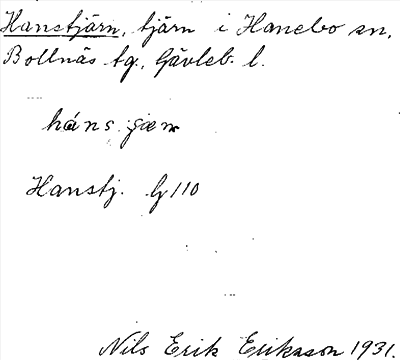 Hanstjärn, tjärn i Hanebo sn,
Bollnäs tg., Gävleb. l.
háns. gærn
Hanstj. lg 110
Nils Erik Eriksson 1931.